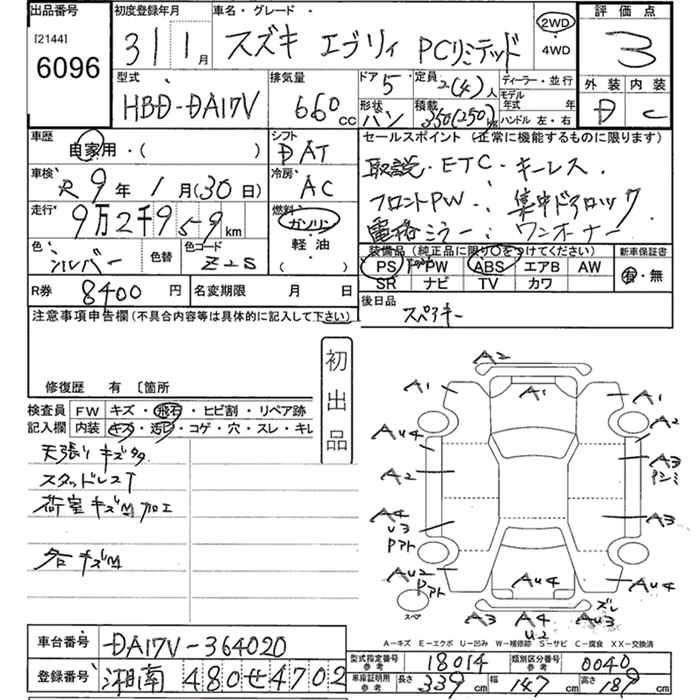 出品番号 初度登録年月 車名・グレード・ 評価点
[2144] 6096 31 1月 スズキ エブリィ PCリミテッド 2WD・4WD 3
型式 排気量 ドア 5 定員 2(4)人 ディーラー・並行 外装 内装
HBD-DA17V 660cc 形状 バン 積載 350(250)kg モデル年式 年 ハンドル 左・右 D C
車歴 シフト セールスポイント (正常に機能するものに限ります)
自家用・( ) DAT
取説・ETC・キーレス・
車検 R9年1月(30日) 冷房 AC
フロントPW・集中ドアロック
走行 9万2千959km 燃料 ガソリン・軽油・( )
電格ミラー・ワンオーナー
色 シルバー 色替 色コード Z2S
装備品 (純正品に限り○をつけてください) 新車保証書
PS PW ABS エアB AW 有・無
SR ナビ TV カワ
R券 8400円 名変期限 月 日
後日品 スペアキー
注意事項申告欄(不具合内容等は具体的に記入して下さい)
初出品
修復歴 有 [箇所
検査員記入欄 FW キズ・飛石・ヒビ割・リペア跡
内装 キズ・汚れ・コゲ・穴・スレ・キレ
天張り キズ
スタッドレス
荷室キズM加工
各キズM
A2
A1 A1 A1
AU4 A2
A2 A3
A4 U3 アト A3
AU2 アト AU4 AU4
スペア A3 A4 U2 AU3 ズレ
A-キズ E-エクボ U-凹み W-補修跡 S-サビ C-腐食 XX-交換済
車台番号 DA17V-364020
型式指定番号 参考 18014 類別区分番号 参考 0040
登録番号 湘南 480せ4702
車庫証明用 参考 長さ 339cm 幅 147cm 高さ 189cm